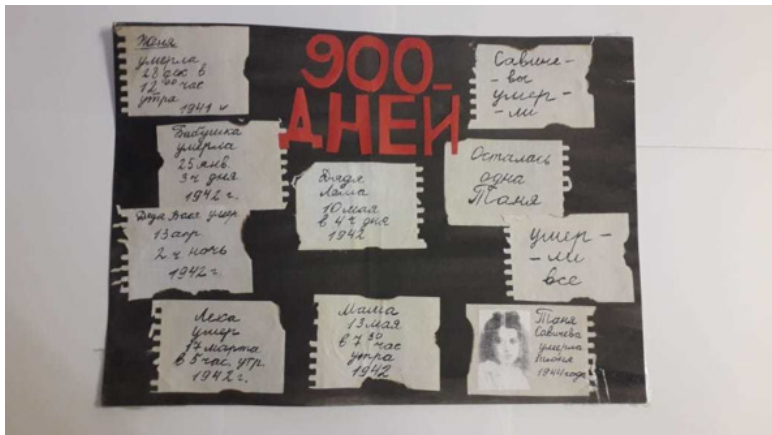 900
ДНЕЙ
Женя
умерла
28 дек в
12⁰⁰ час
утра
1941 г
Бабушка
умерла
25 янв.
3 ч дня
1942 г.
Дядя Вася умер
13 апр
2 ч ночь
1942 г
Лека
умер
17 марта
в 5 час. утр.
1942 г.
Дядя
Леша
10 мая
в 4 ч дня
1942
Мама
13 мая
в 7³⁰ час
утра
1942
Савиче-
-вы
умер-
-ли
Осталась
одна
Таня
умер-
-ли
все
Таня
Савичева
умерла
1944 года